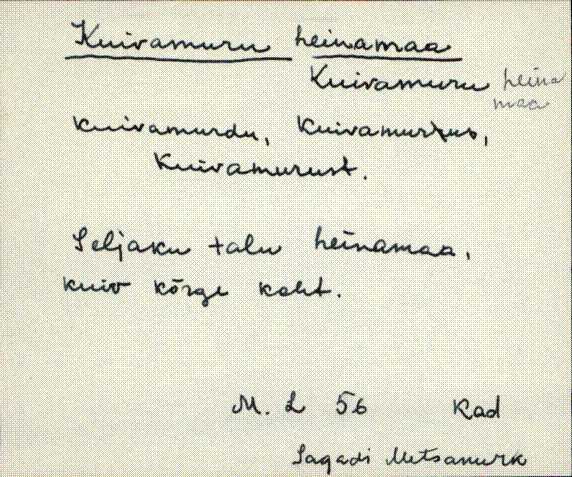 Kuivamuru heinamaa
Kuivamuru heina
maa
Kuivamurdu, Kuivamurrus,
Kuivamurust.
Seljaku talu heinamaa,
kuiv kõrge koht.
M. L 56 Kad
Sagadi Metsanurk